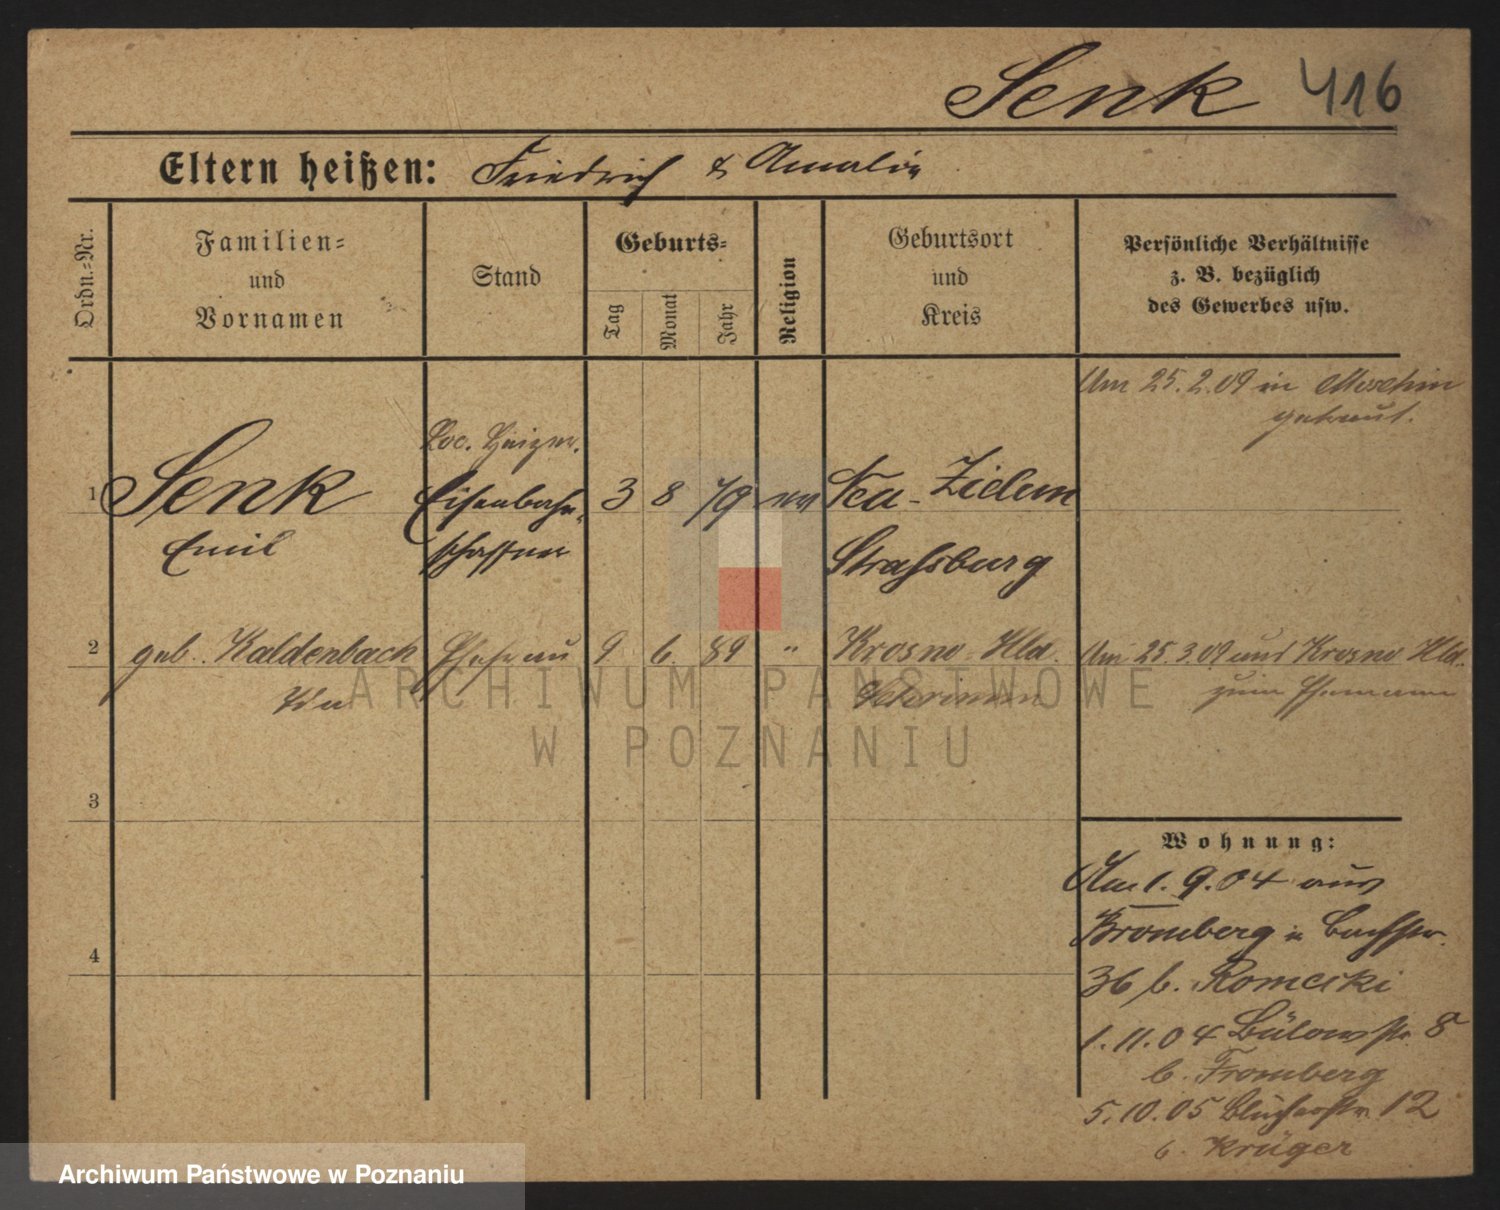 Senk 416
Eltern heißen: Friedrich & Amalie
Ordn.=Nr.
Familien=
und
Vornamen
Stand
Geburts=
Tag
Monat
Jahr
Religion
Geburtsort
und
Kreis
Persönliche Verhältnisse
z. B. bezüglich
des Gewerbes usw.
Am 25.2.09 in Moschin
getraut.
Loc. Heizer.
1 Senk Eisenbahn- 3 8 79 Neu-Zielun
Emil schaffner Strasburg
2 geb. Kaldenbach Ehefrau 9 6. 89 " Krosno Hld.
Schrimm
Am 25.3.09 aus Krosno Hld.
zum Ehemann
3
4
Wohnung:
Am 1.9.04 aus
Bromberg n Bachstr.
36 b. Romcski
1.11.04 Bülowstr. 8
b. Fromberg
5.10.05 Blücherstr. 12
b. Krüger
ARCHIWUM PAŃSTWOWE
W POZNANIU
Archiwum Państwowe w Poznaniu